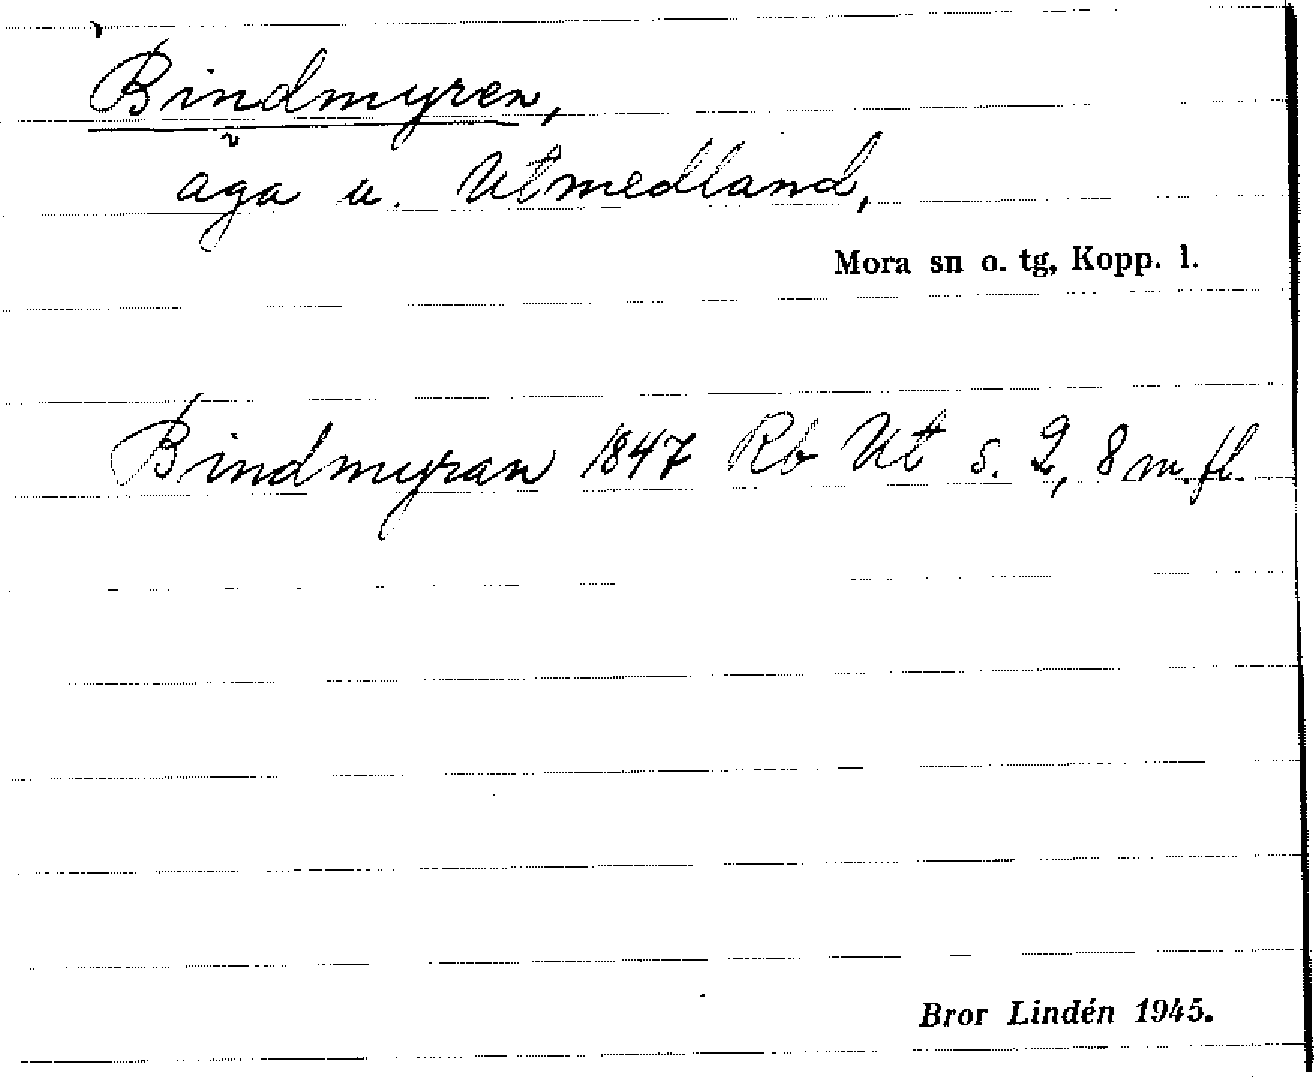 Bindmyren,
äga u. Utmedland,
Mora sn o. tg, Kopp. l.
Bindmyran 1847 Rb Ut s. 2, 8 m. fl.
Bror Lindén 1945.